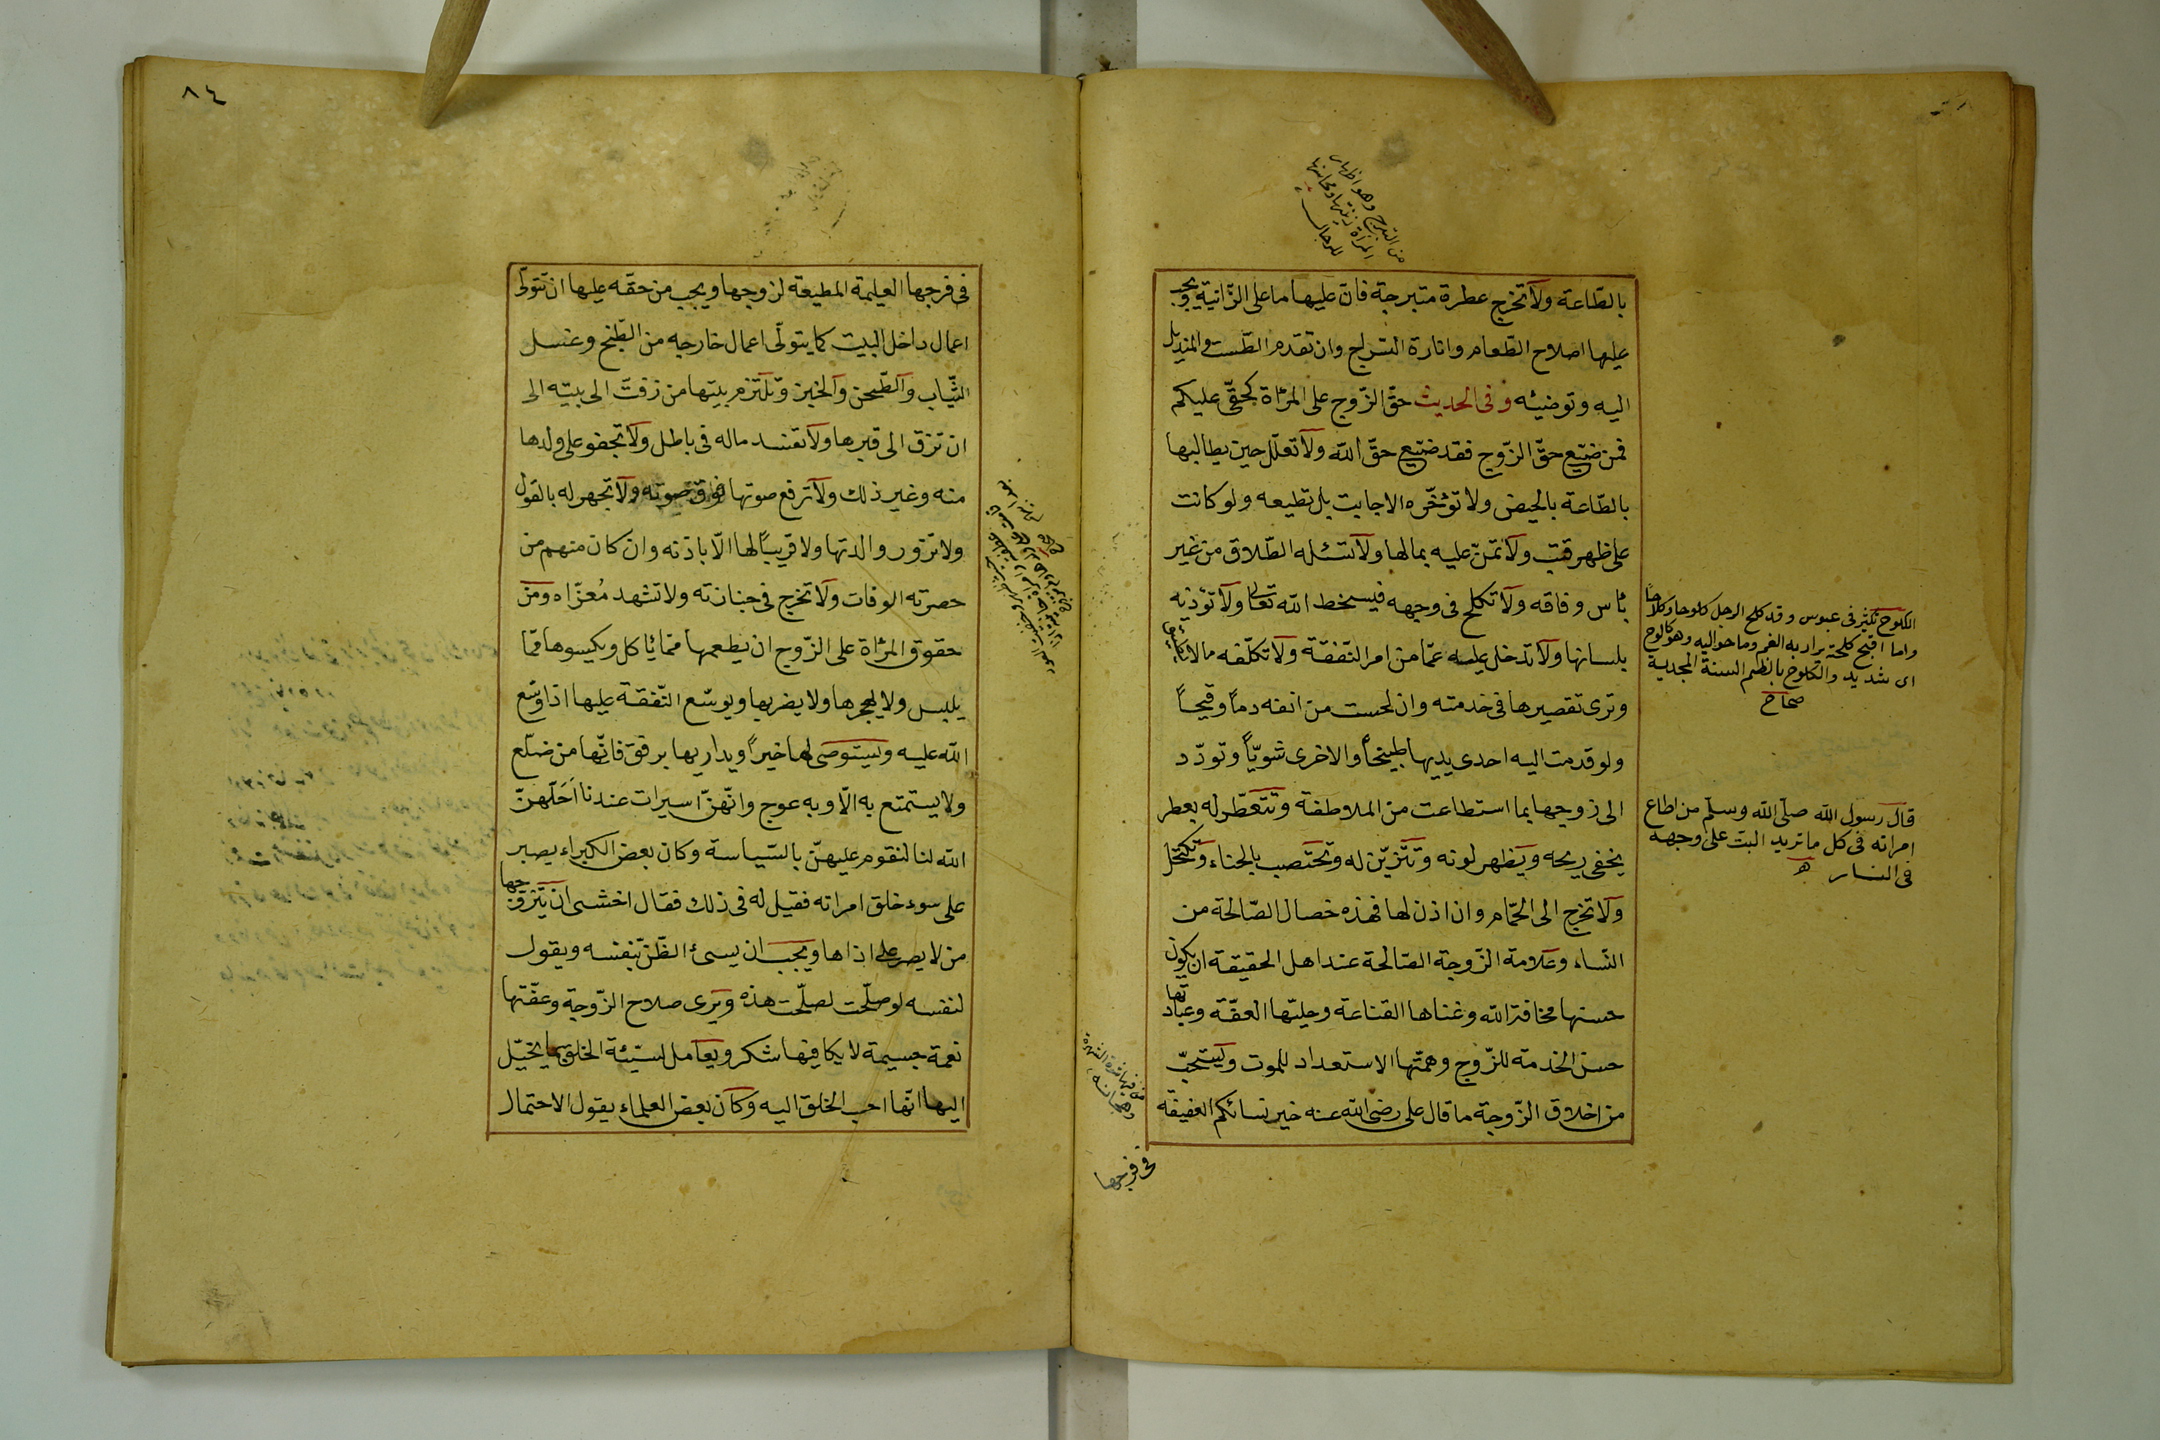 من التبرج وهو اظهار
المرأة زينتها ومحاسنها
للرجال
بالطّاعة ولا تخرج عطرة متبرجة فانّ عليها ما على الزّانية ويجب
عليها اصلاح الطّعام وانارة السّراج وان تقدم الطّست والمنديل
اليه وتوضيئه وفى الحديث حقّ الزّوج على المرأة كحقّى عليكم
فمن ضيّع حقّ الزّوج فقد ضيّع حقّ الله ولا تعلّل حين يطالبها
بالطّاعة بالحيض ولا تؤخّره الاجابت بل تطيعه ولو كانت
على ظهر قتب ولا تمنّ عليه بمالها ولا تسئله الطّلاق من غير
بأس وفاقه ولا تكلح فى وجهه فيسخط الله تعالى ولا تؤذيه
بلسانها ولا تدخل عليه عمّا من امر النّفقة ولا تكلّفه ما لا يطيق
وترى تقصيرها فى خدمته وان لحست من انفه دماً وقيحاً
ولو قدمت اليه احدى يديها طبيخاً والاخرى شويّاً وتودّد
الى زوجها بما استطاعت من الملاطفة وتتعطّر له بعطر
يخفى ريحه ويظهر لونه وتتزيّن له وتختصب بالحناء وتكتحل
ولا تخرج الى الحمّام وان اذن لها فهذه خصال الصّالحة من
النّساء وعلامة الزّوجة الصّالحة عند اهل الحقيقة ان يكون
حسنها مخافة الله وغناها القناعة وحليّها العفّة وعبادتها
حسن الخدمة للزّوج وهمّتها الاستعداد للموت ويستحبّ
من اخلاق الزّوجة ما قال على رضى الله عنه خير نسائكم العفيفة
فى فرجها
الكلوح تكشر فى عبوس وقد كلح الرجل كلوحا وكلاحا
واما اقبح كلحته يراد به الفم وما حواليه وهو كالوح
اى شديد والكلوح بالضم السنة المجدبة
صحاح
قال رسول الله صلّى الله وسلّم من اطاع
امراته فى كل ما تريد البت على وجهه
فى النار
٨٤
فى فرجها العليمة المطيعة لزوجها ويجب من حقّه عليها ان تتولّى
اعمال داخل البيت كما يتولّى اعمال خارجه من الطّبخ وغسل
الثّياب والطّحن والخبز وتلتزم بيتها من زفّت الى بيته الى
ان تزق الى قبرها ولا تفسد ماله فى باطل ولا تجفو على ولدها
منه وغير ذلك ولا ترفع صوتها فوق صوته ولا تجهر له بالقول
ولا تزور والدتها ولا قريباً لها الّا باذنه وان كان منهم من
حضرته الوفات ولا تخرج فى جنازته ولا تشهد مُعزّاه ومن
حقوق المرأة على الزّوج ان يطعمها ممّا يأكل ويكسوها ممّا
يلبس ولا يهجرها ولا يضربها ويوسّع النّفقة عليها اذا وسّع
الله عليه ويستوصى لها خيراً ويداريها برفق فانّها من ضلع
ولا يستمتع به الّا وبه عوج وانّهنّ اسيرات عندنا احلّهنّ
الله لنا لنقوم عليهنّ بالسّياسة وكان بعض الكبراء يصبر
على سوء خلق امراته فقيل له فى ذلك فقال اخشى ان يتزوّجها
من لا يصبر على اذاها ويجب ان يسئ الظّنّ بنفسه ويقول
لنفسه لو صلحت لصلحت هذه ويرى صلاح الزّوجة وعفّتها
نعمة جسيمة لا يكافيها شكر ويعامل لسيّئة الخلق بما يخيّل
اليها انّها احب الخلق اليه وكان بعض العلماء يقول الاحتمال